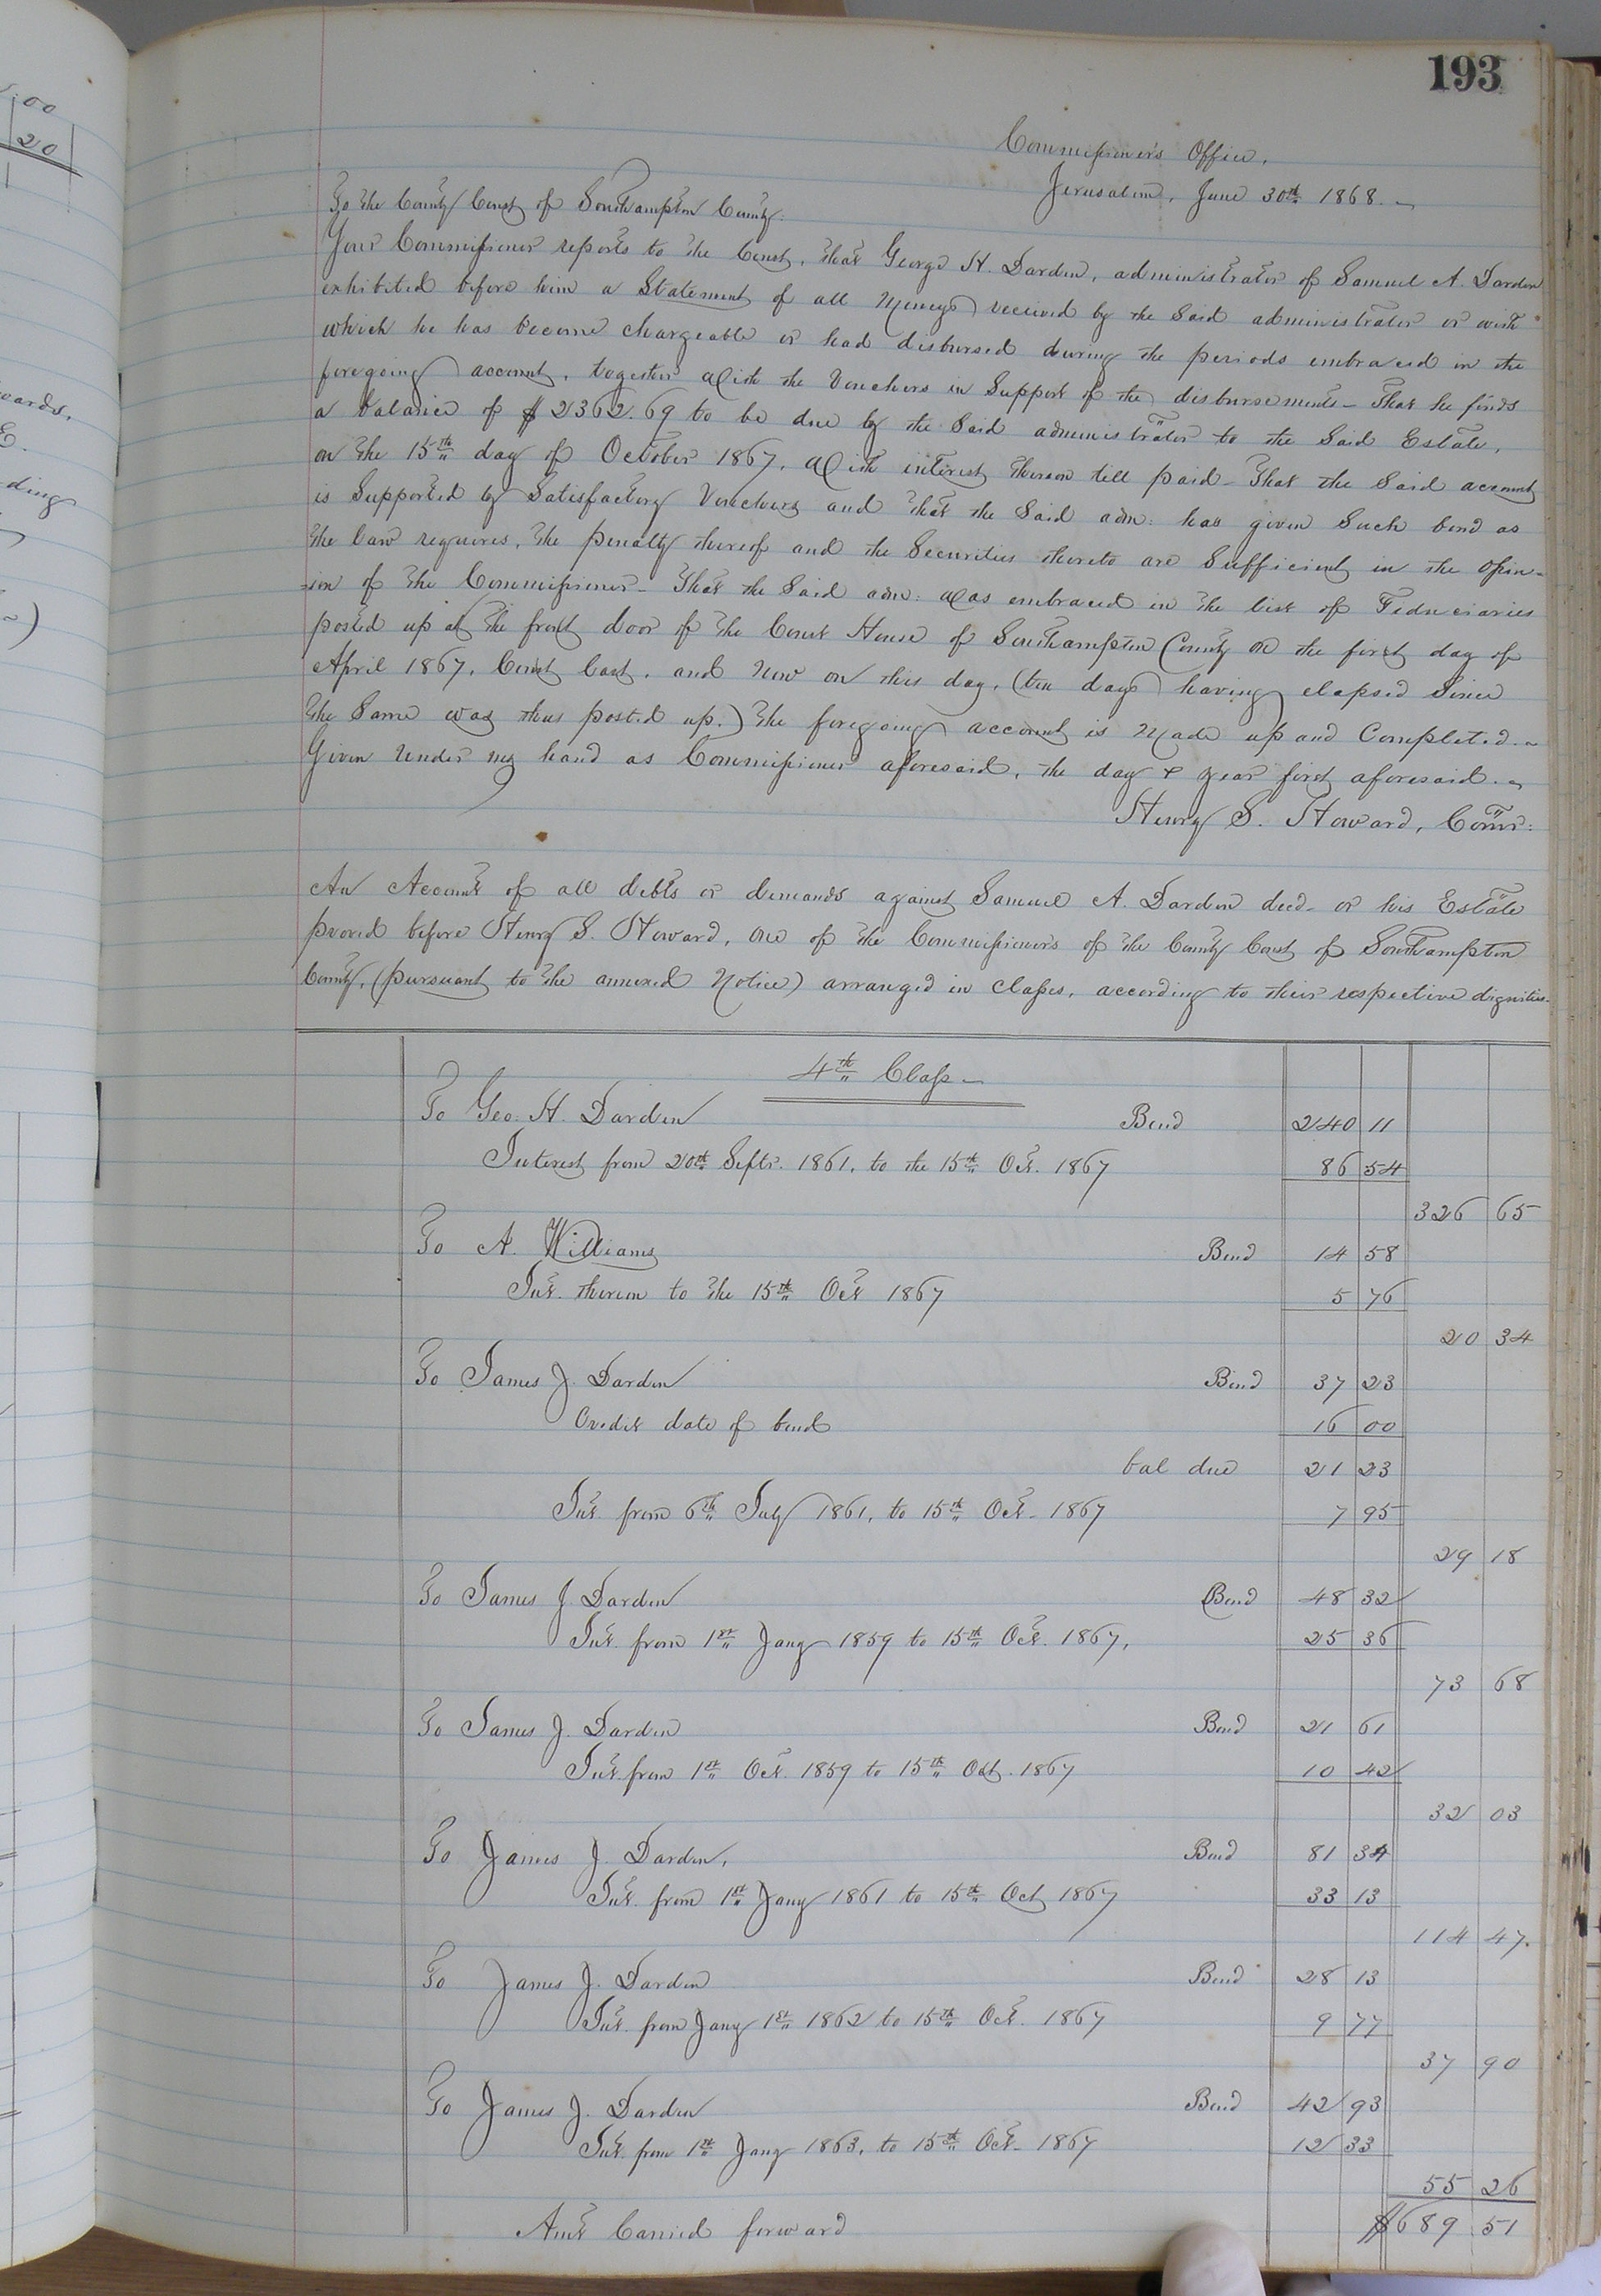 00
20
eards,
E.
ding
193
Commissioner's Office,
Jerusalem, June 30th 1868.
To the County Court of Southampton County.
Your Commissioner reports to the Court, that George H. Darden, administrator of Samuel A. Darden
exhibited before him a Statement of all Moneys received by the Said administrator or with
which he has become chargeable or had disbursed during the periods embraced in the
foregoing account, together with the Vouchers in Support of the disbursements - That he finds
a balance of $2362.69 to be due by the Said administrator to the Said Estate,
on the 15th day of October 1867, with interest thereon till paid - That the Said account
is Supported by Satisfactory Vouchers and that the Said adm: has given Such bond as
the law requires, the penalty thereof and the Securities thereto are Sufficient in the opin-
-ion of the Commissioner - That the Said adm: was embraced in the list of Fiduciaries
posted up at the front door of the Court House of Southampton County on the first day of
April 1867, Court last, and Now on this day, (ten days having elapsed Since
the Same was thus posted up.) The foregoing account is Made up and Completed. ~
Given Under my hand as Commissioner aforesaid, the day & year first aforesaid. ~
Henry S. Howard, Comr:
An Account of all debts or demands against Samuel A. Darden decd - or his Estate
proved before Henry S. Howard, one of the Commissioners of the County Court of Southampton
County, (pursuant to the annexed Notice) arranged in classes, according to their respective dignities -
4th Class -
To Geo. H. Darden Bond 240 11
Interest from 20th Septr. 1861, to the 15th Oct. 1867 86 54
326 65
To A. Williams Bond 14 58
Int. thereon to the 15th Oct 1867 5 76
20 34
To James J. Darden Bond 37 23
Credit date of bond 16 00
bal due 21 23
Int. from 6th July 1861, to 15th Oct - 1867 7 95
29 18
To James J. Darden Bond 48 32
Int. from 1st Jany 1859 to 15th Oct. 1867, 25 36
73 68
To James J. Darden Bond 21 61
Int. from 1st Oct. 1859 to 15th Oct. 1867 10 42
32 03
To James J. Darden, Bond 81 34
Int. from 1st Jany 1861 to 15th Oct 1867 33 13
114 47.
To James J. Darden Bond 28 13
Int. from Jany 1st 1862 to 15th Oct. 1867 9 77
37 90
To James J. Darden Bond 42 93
Int. from 1st Jany 1863, to 15th Oct - 1867 12 33
55 26
Amt Carried forward $689 51